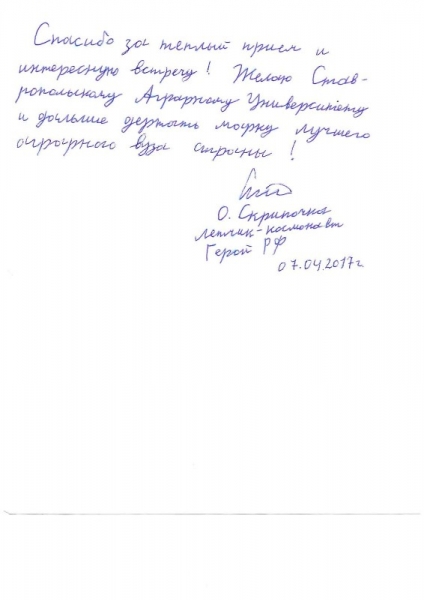 Спасибо за теплый прием и
интересную встречу! Желаю Став-
ропольскому Аграрному Университету
и дальше держать марку лучшего
аграрного вуза страны!
О. Скрипочка
летчик-космонавт
Герой РФ
07.04.2017г